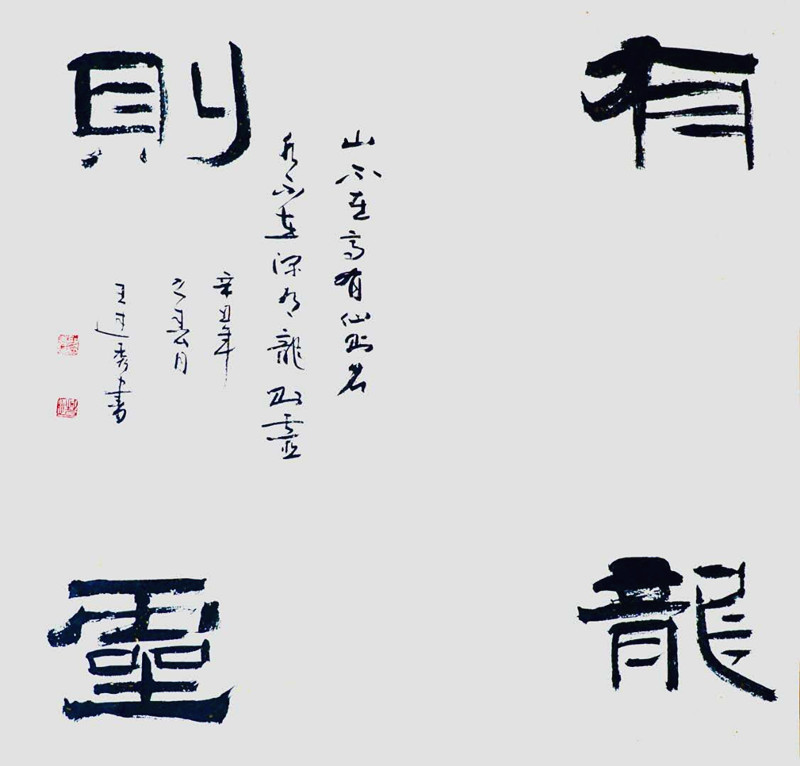 有龍
則靈
山不在高有仙則名
水不在深有龍則靈
辛丑年
之春月
王秀書